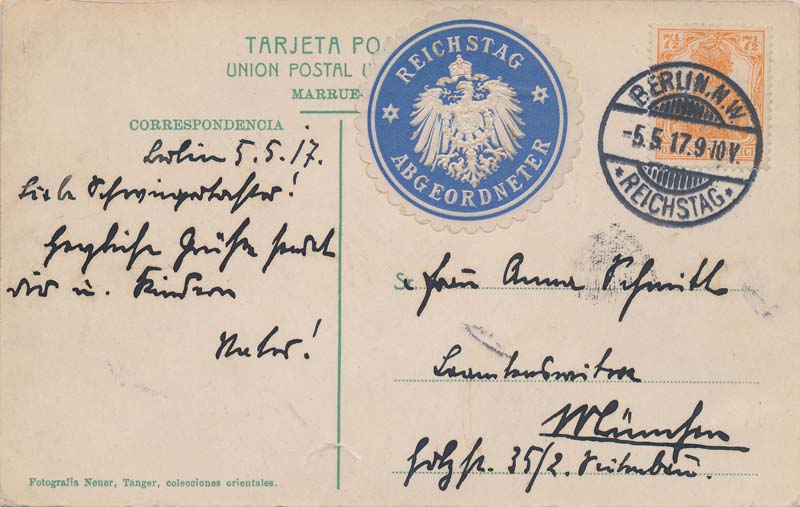 TARJETA PO
UNION POSTAL U
MARRUE
REICHSTAG
ABGEORDNETER
7½ 7½
BERLIN.N.W.
-5.5.17.9-10V.
*REICHSTAG*
CORRESPONDENCIA
Berlin 5.5.17.
Liebe Schwiegertochter!
Herzliche Grüße sendet
dir u. Kindern
Vater!
Frau Anna Schmitt
Beamtenswitwe
München
Holzstr. 35/2.
Fotografía Neuer, Tanger, colecciones orientales.